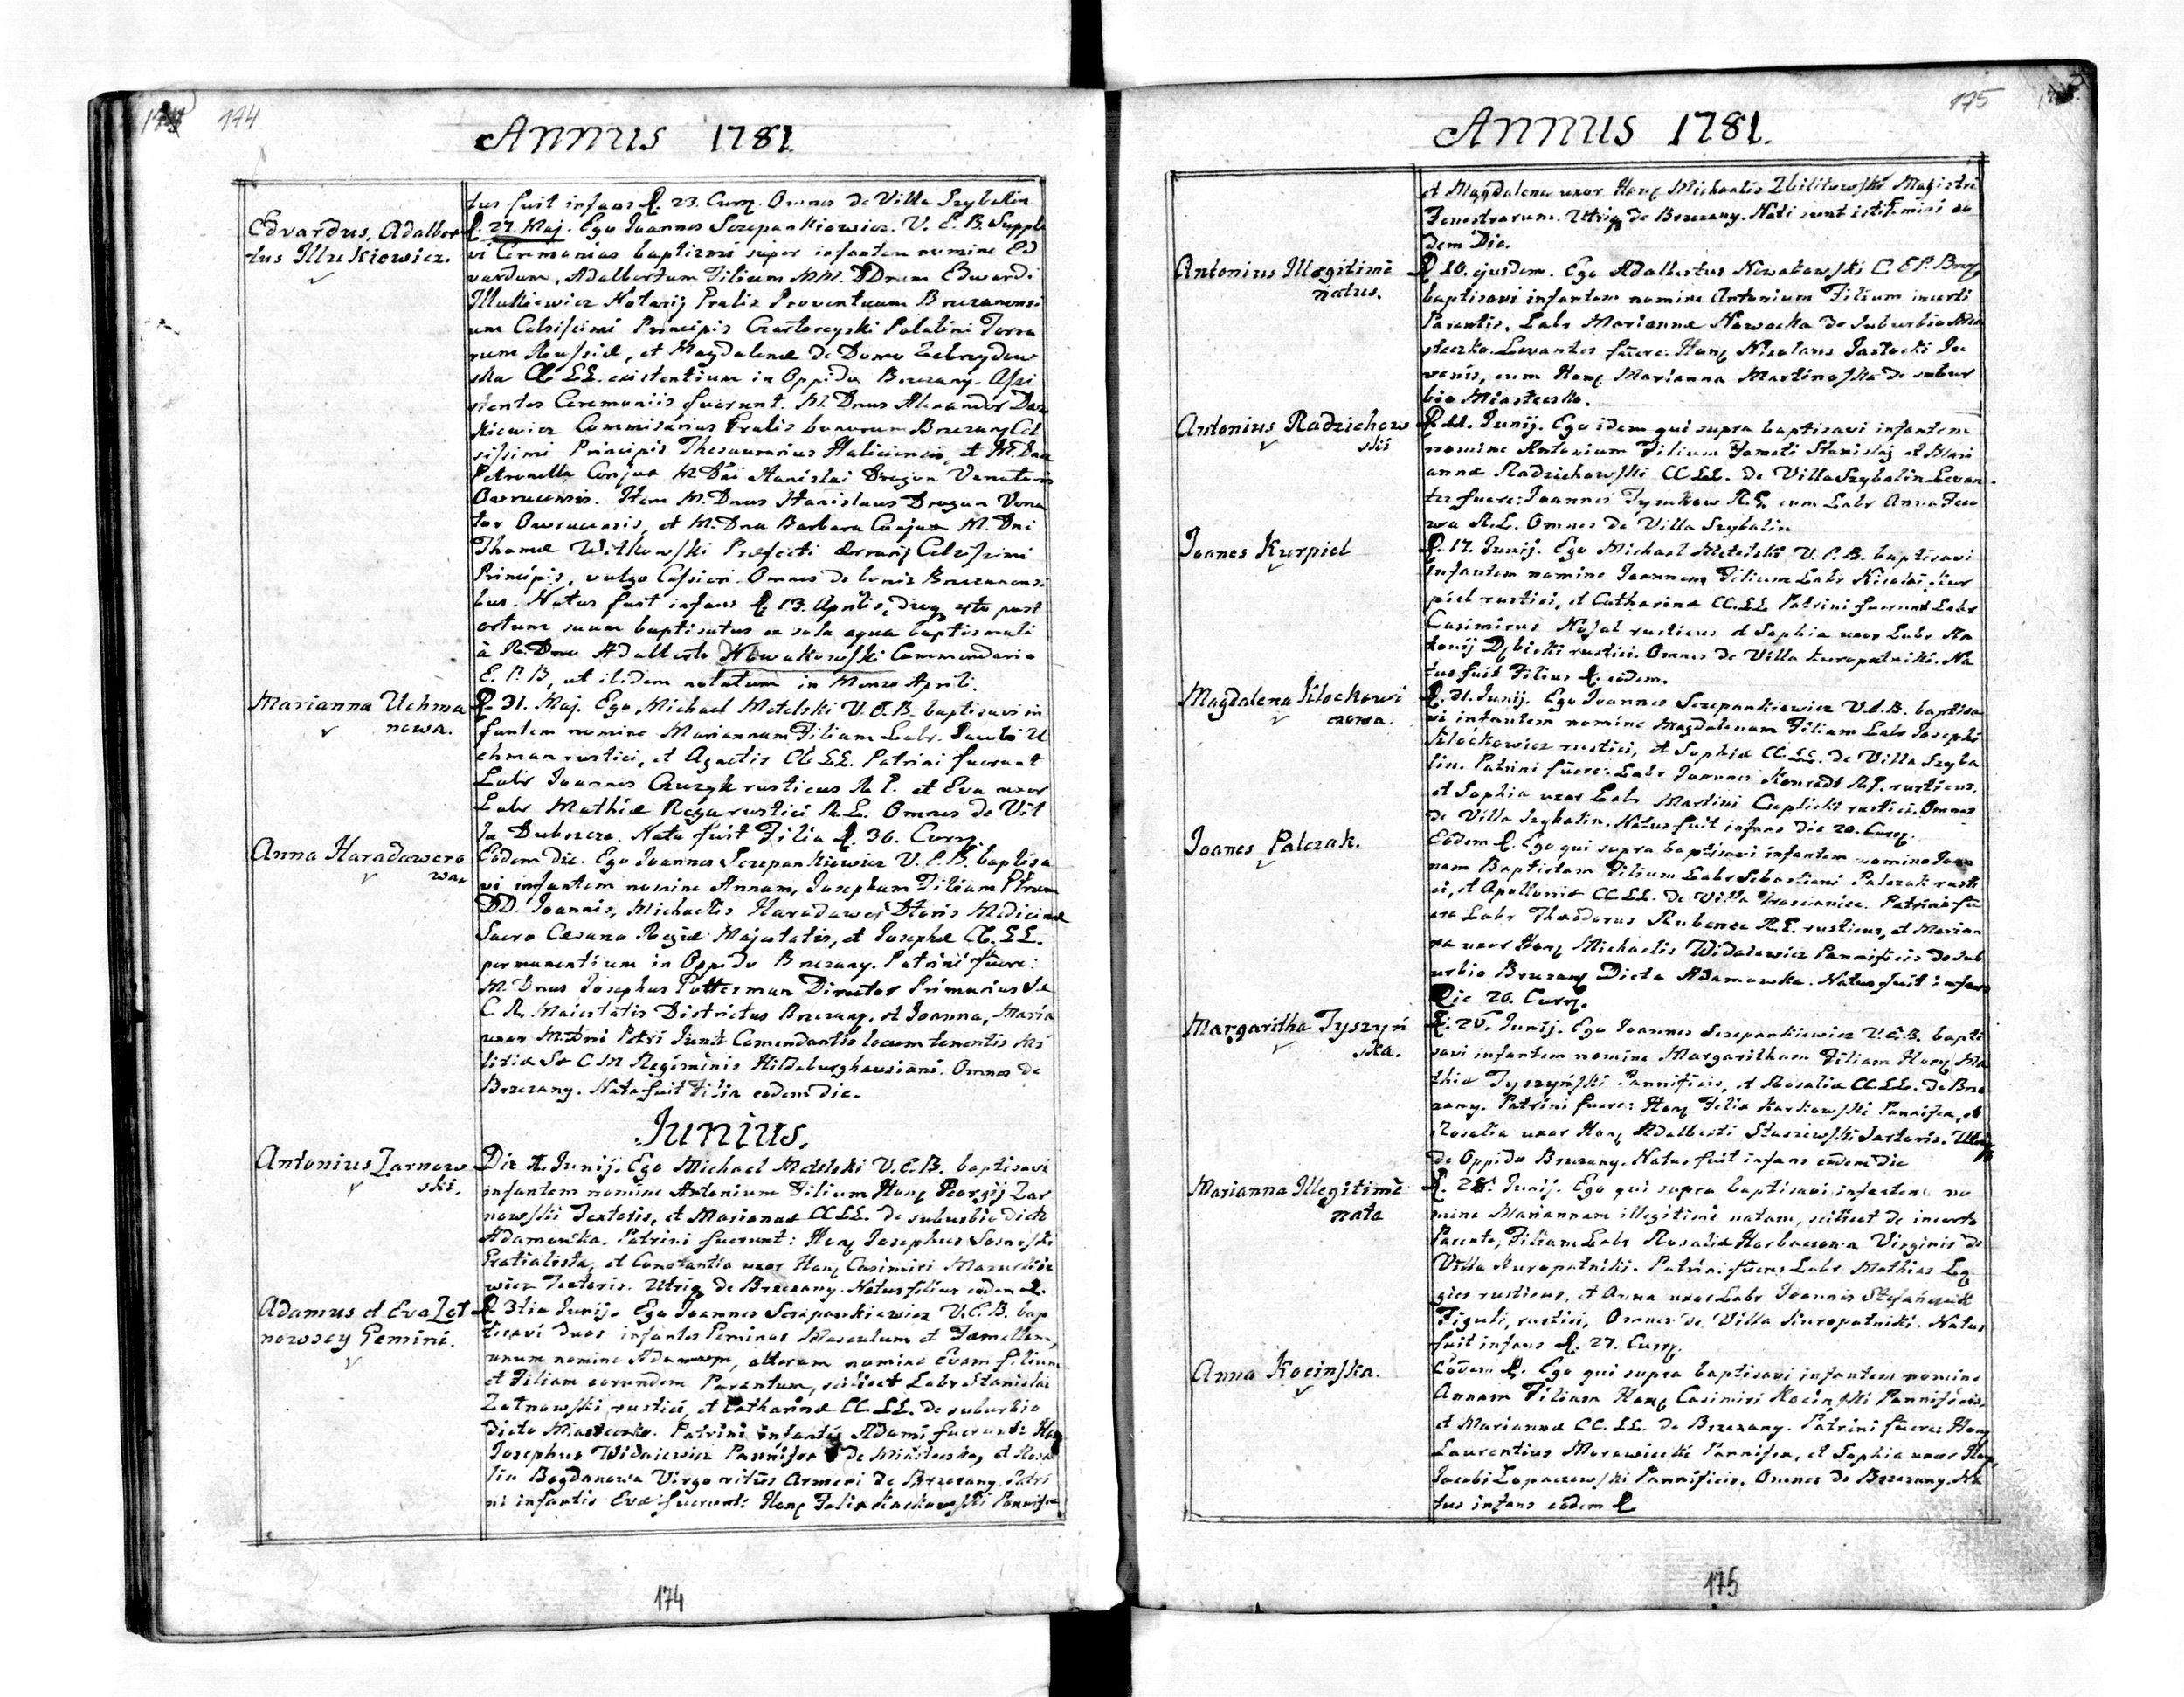 174
Annus 1781
tus fuit infans D. 23. Curr. Omnes de Villa Szybalin
Edvardus, Adalber
tus Illukiewicz.
D. 27. Maj. Ego Joannes Szczepankiewicz. V. E. B. Supple
vi Ceremonias baptismi super infantem nomine Ed
vardum, Adalbertum Filium MM. DDrum Edwardi
Illukiewicz Notarij Gralis Proventuum Brzezanensi
um Celsissimi Principis Czartoryski Palatini Terra
rum Russiæ, et Magdalenæ de Domo Zebrzydow
ska CC LL. existentium in Oppido Brzezany. Assi
stentes Ceremoniis fuerunt. M. Dnus Alexander Dasz
kiewicz Commisarius Gralis bonorum Brzezany Cel
sissimi Principis Thesaurarius Haliciensis, et M. Dna
Petronella Conjux M. Dni Stanislai Dragan Venatoris
Owrucensis. Item M. Dnus Stanislaus Dragan Vena
tor Owrucensis, et M. Dna Barbara Conjux M. Dni
Thomæ Witkowski Præfecti Ærarij Celsissimi
Principis, vulgo Cassieri. Omnes de bonis Brzezanensi
bus. Natus fuit infans D. 13. Aprilis, post
ortum suum baptisatus ex sola aqua baptismali
à R. Dno Adalberto Nowakowski Commendario
E. P. B, ut ibidem notatum in Mense Aprili.
Marianna Uchma
nowa.
D. 31. Maj. Ego Michael Metelski V. E. B. baptisavi in
fantem nomine Mariannam Filiam Labr. Jacobi U
chman rustici, et Agnetis CC LL. Patrini fuerunt
Labr Joannes Czuzyk rusticus R L. et Eva uxor
Labr Mathiæ Rega rustici R. L. Omnes de Vil
la Dubszcze. Nata fuit Filia D. 30. Curr.
Anna Haradawero
wa.
Eodem die. Ego Joannes Szczepankiewicz V. E. B. baptisa
vi infantem nomine Annam, Josepham Filiam
DD. Joannis, Michaelis Haradawer Dtoris Medicinæ
Sacro Cæsareo Regiæ Majestatis, et Josephæ CC. LL.
permanentium in Oppido Brzezany. Patrini fuere:
M. Dnus Josephus Potterman Director Primarius Sæ
C. R. Maiestatis Districtus Brzezany, et Joanna, Maria
uxor M. Dni Petri Comendantis locum tenentis Mi
litiæ Sæ C M Regiminis Hildeburghausiani. Omnes de
Brzezany. Nata fuit Filia eodem die.
Junius.
Antonius Zarnow
ski.
Die Junij. Ego Michael Metelski V. E. B. baptisavi
infantem nomine Antonium Filium Hon Georgij Zar
nowski Textoris, et Mariannæ CC LL. de suburbio dicto
Adamowka. Patrini fuerunt: Hon Josephus
Gratialista, et Constantia uxor Hon Casimiri Mazurkie
wicz Textoris. Utriq de Brzezany. Natus filius eadem D.
Adamus et Eva Zot
nowscy Gemini.
D 3tia Junij. Ego Joannes Szczepankiewicz V. E. B. bap
tisavi duos infantes Geminos Masculum et Fæmellam,
unum nomine Adamum, alteram nomine Evam filium
et Filiam eorundem Parentum, scilicet Labr Stanislai
Zotnowski rustici, et Catharinæ CC. LL. de suburbio
dicto Miasteczko. Patrini infantis Adami fuerunt: Hon
Josephus Widaiewicz Pannifex de Miasteczko, et Rosa
lia Bogdanowa Virgo ritus Armeni de Brzezany. Patri
ni infantis Evæ fuerunt: Hon Felix Kaczkowski Pannifex
174
175
Annus 1781.
et Magdalena uxor Hon Michaelis Zbilitowski Magistri
Fenestrarum. Utriq de Brzezany. Nati sunt isti Gemini eo
dem Die.
Antonius Illegitimè
natus.
D 10. ejusdem. Ego Adalbertus Nowakowski C. E P. Brz
baptisavi infantem nomine Antonium Filium incerti
Parentis, Labr Mariannæ Nowacka de Suburbio Mia
steczko. Levantes fuere: Hon Nicolaus Jastocki Ju
venis, cum Hon Marianna Martinoska de subur
bio Miasteczko.
Antonius Radzichow
ski
D 11. Junij. Ego idem qui supra baptisavi infantem
nomine Antonium Filium Famati Stanislaj et Mari
annæ Radzichowski CC LL. de Villa Szybalin Levan
tes fuere: Joannes Tymkow R. G. cum Labr Anna
wa R. L. Omnes de Villa Szybalin
Joanes Kurpiel
D. 17. Junij. Ego Michael Metelski V. E. B. baptisavi
infantem nomine Joannem Filium Labr Nicolai Kur
piel rustici, et Catharinæ CC. LL Patrini fuerunt Labr
Casimirus Nosal rusticus et Sophia uxor Labr An
tonij Dębicki rustici. Omnes de Villa Kuropatniki. Na
tus fuit Filius D. eodem.
Magdalena Klockowi
czowa.
D. 21. Junij. Ego Joannes Szczepankiewicz V. E. B. baptisa
vi infantem nomine Magdalenam Filiam Labr Josephi
Klockowicz rustici, et Sophiæ CC. LL. de Villa Szyba
lin. Patrini fuere: Labr Joannes Konradt rusticus,
et Sophia uxor Labr Martini Cieplicki rustici. Omnes
de Villa Szybalin. Natus fuit infans die 20. Curr.
Joanes Palczak.
Eodem D. Ego qui supra baptisavi infantem nomine Joan
nem Baptistam Filium Labr Sebastiani Palczak rusti
ci, et Apolloniæ CC. LL. de Villa Patrini fu
ere Labr Theodorus Rubenec R. G. rusticus, et Marian
na uxor Hon Michaelis Widaiewicz Pannificis de Sub
urbio Brzezany Dicto Adamowka. Natus fuit infans
Die 20. Curr.
Margaritha Tyszyń
ska.
D. 25. Junij. Ego Joannes Szczepankiewicz V. E. B. bapti
savi infantem nomine Margaritham Filiam Hon Ma
thiæ Tyszyński Pannificis, et Rosaliæ CC. LL. de Brze
zany. Patrini fuere: Hon Felix Karkowski Pannifex, et
Rosalia uxor Hon Adalberti Staszewski Sartoris. Utriq
de Oppido Brzezany. Natus fuit infans eodem die
Marianna Illegitimè
nata
D. 28. Junij. Ego qui supra baptisavi infantem no
mine Mariannam illegitimè natam, scilicet de incerto
Parente, Filiam Labr Rosaliæ Virginis de
Villa Kuropatniki. Patrini fuere Labr Mathias
rusticus, et Anna uxor Labr Joannis
Figuli, rustici, Omnes de Villa Kuropatniki. Natus
fuit infans D. 27. Curr.
Anna Kocińska.
Eodem D. Ego qui supra baptisavi infantem nomine
Annam Filiam Hon Casimiri Kociński Pannificis,
et Mariannæ CC. LL. de Brzezany. Patrini fuere: Hon
Laurentius Morawiecki Pannifex, et Sophia uxor Hon
Jacobi Lopaczewski Pannificis. Omnes de Brzezany. Na
tus infans eodem D
175